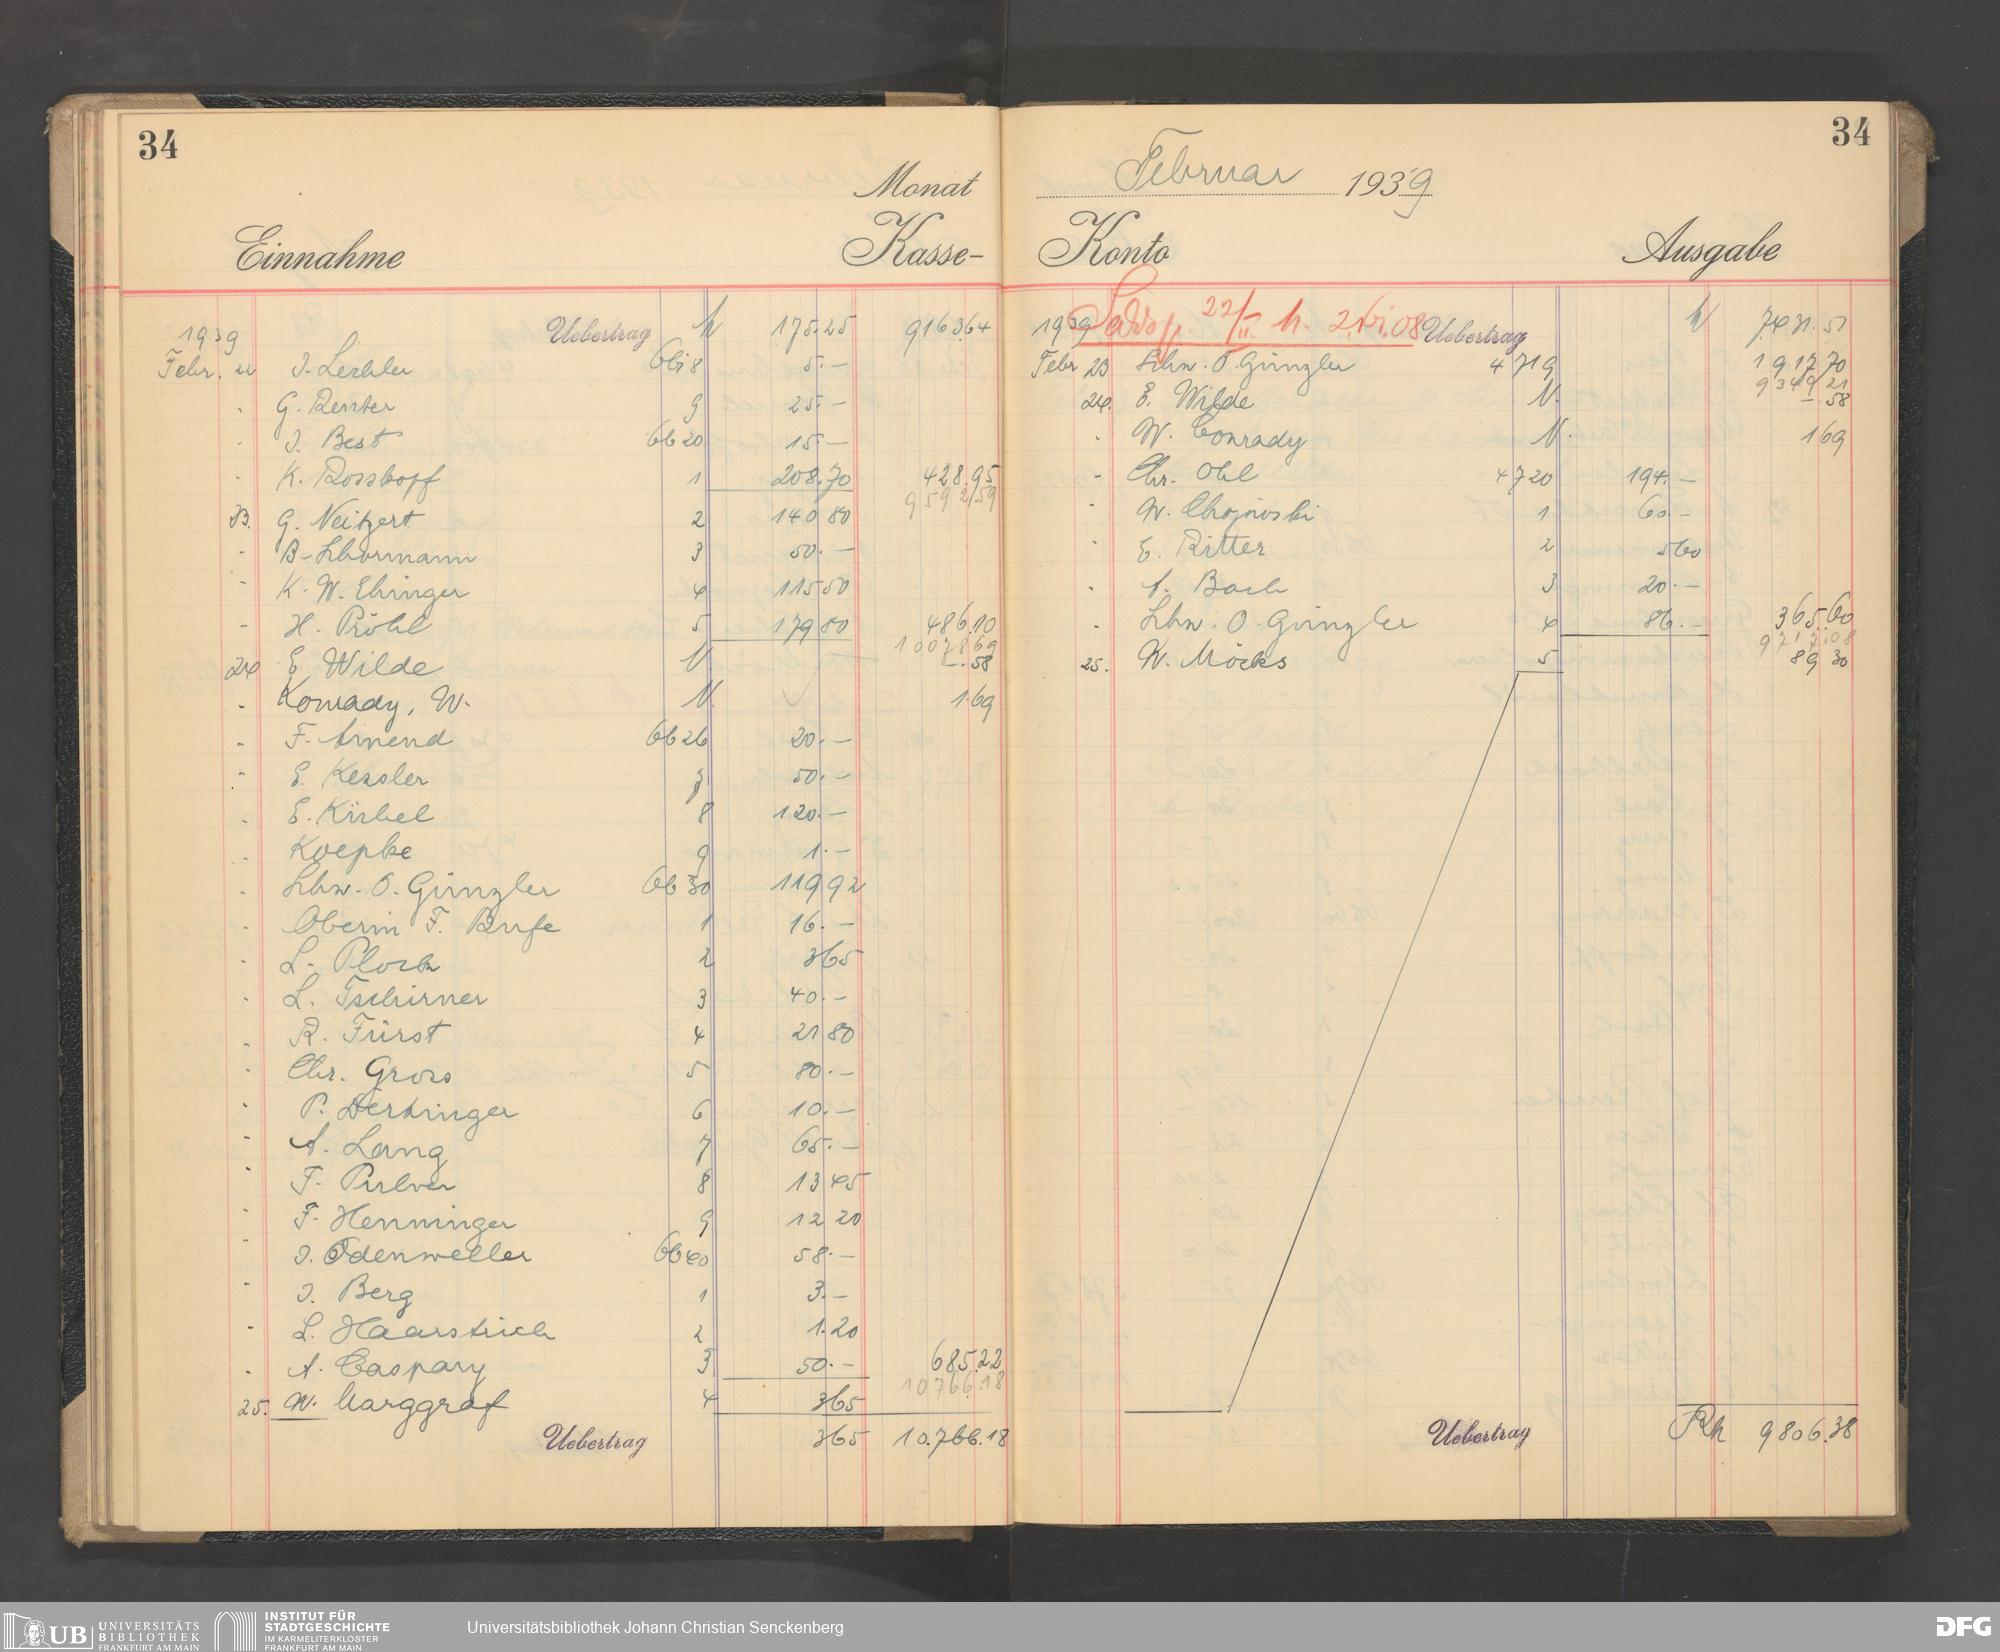 34
Monat
Einnahme Kasse-
1939 Uebertrag 175.25 9163.64
Febr. 22 J. Lechler 6618 5.-
G. Renter 9 25.-
J. Best 6620 15.-
K. Rosskopf 1 208.70 428.95
9592.59
23. G. Neitzert 2 140 80
B. 3 50.-
K. W. Ehinger 4 115 50
H. Pröhl 5 179 80 486.10
10078 69
24 E. Wilde N. -.58
Konrady, W. N. 1.69
F. Amend 6626 20.-
E. Kessler 7 50.-
E. Kirbel 8 120.-
Koepke 9 1.-
Schw. O. Günzler 6630 119 92
Oberin F. Bufe 1 16.-
L. Ploch 2 3 65
L. Tschirner 3 40.-
R. Fürst 4 21 80
Chr. Gross 5 80.-
P. Dertinger 6 10.-
A. Lang 7 65.-
F. Pulver 8 13 45
F. Henninger 9 12 20
J. Odenweller 6640 58.-
J. Berg 1 3.-
L. Haarstrich 2 1.20
A. Caspary 3 50.- 685.22
10766.18
25. W. Marggraf 4 3 65
Uebertrag 3 65 10.766.18
34
Februar 1939
Konto Ausgabe
1939 22/II. Uebertrag 7431.51
Febr 23 Schw. O. Günzler 4719 1917 70
9349 21
24. E. Wilde N. -.58
W. Conrady N. 1 69
Chr. Ohl 4720 194.-
W. Chojnoski 1 60.-
E. Ritter 2 5 60
A. Bach 3 20.-
Schw. O. Günzler 4 86.- 365.60
9717.08
25. W. Möcks 5 89 30
Uebertrag 9806.38
UB UNIVERSITÄTS
BIBLIOTHEK
FRANKFURT AM MAIN
INSTITUT FÜR
STADTGESCHICHTE
IM KARMELITERKLOSTER
FRANKFURT AM MAIN
Universitätsbibliothek Johann Christian Senckenberg
DFG